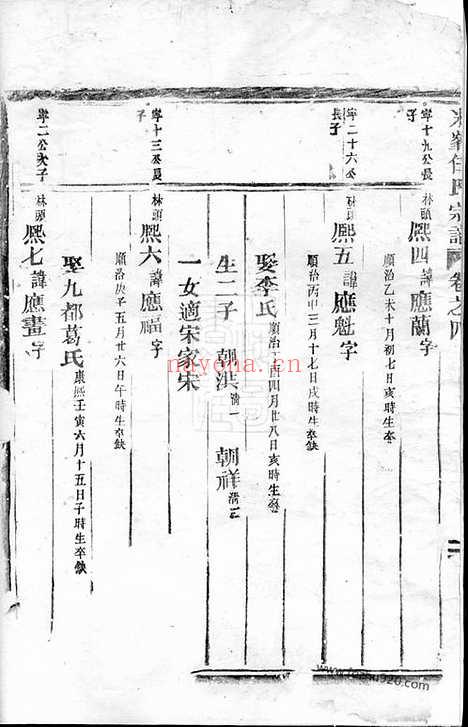 宗譜 卷之四
寧十九公長子
林頭 熙四 諱應蘭 字
順治乙未十月初七日亥時生卒
寧二十六公長子
熙五 諱應魁 字
順治丙申三月十七日戌時生卒缺
娶李氏 順治 酉四月廿八日亥時生卒
生二子 朝洪 清一 朝祥 清二
一女適宋家宋
寧十三公長子
林頭 熙六 諱應福 字
順治庚子五月廿六日午時生卒缺
寧二公次子
林頭 熙七 諱應畫 字
娶九都葛氏 康熙壬寅六月十五日子時生卒缺
nayona.cn